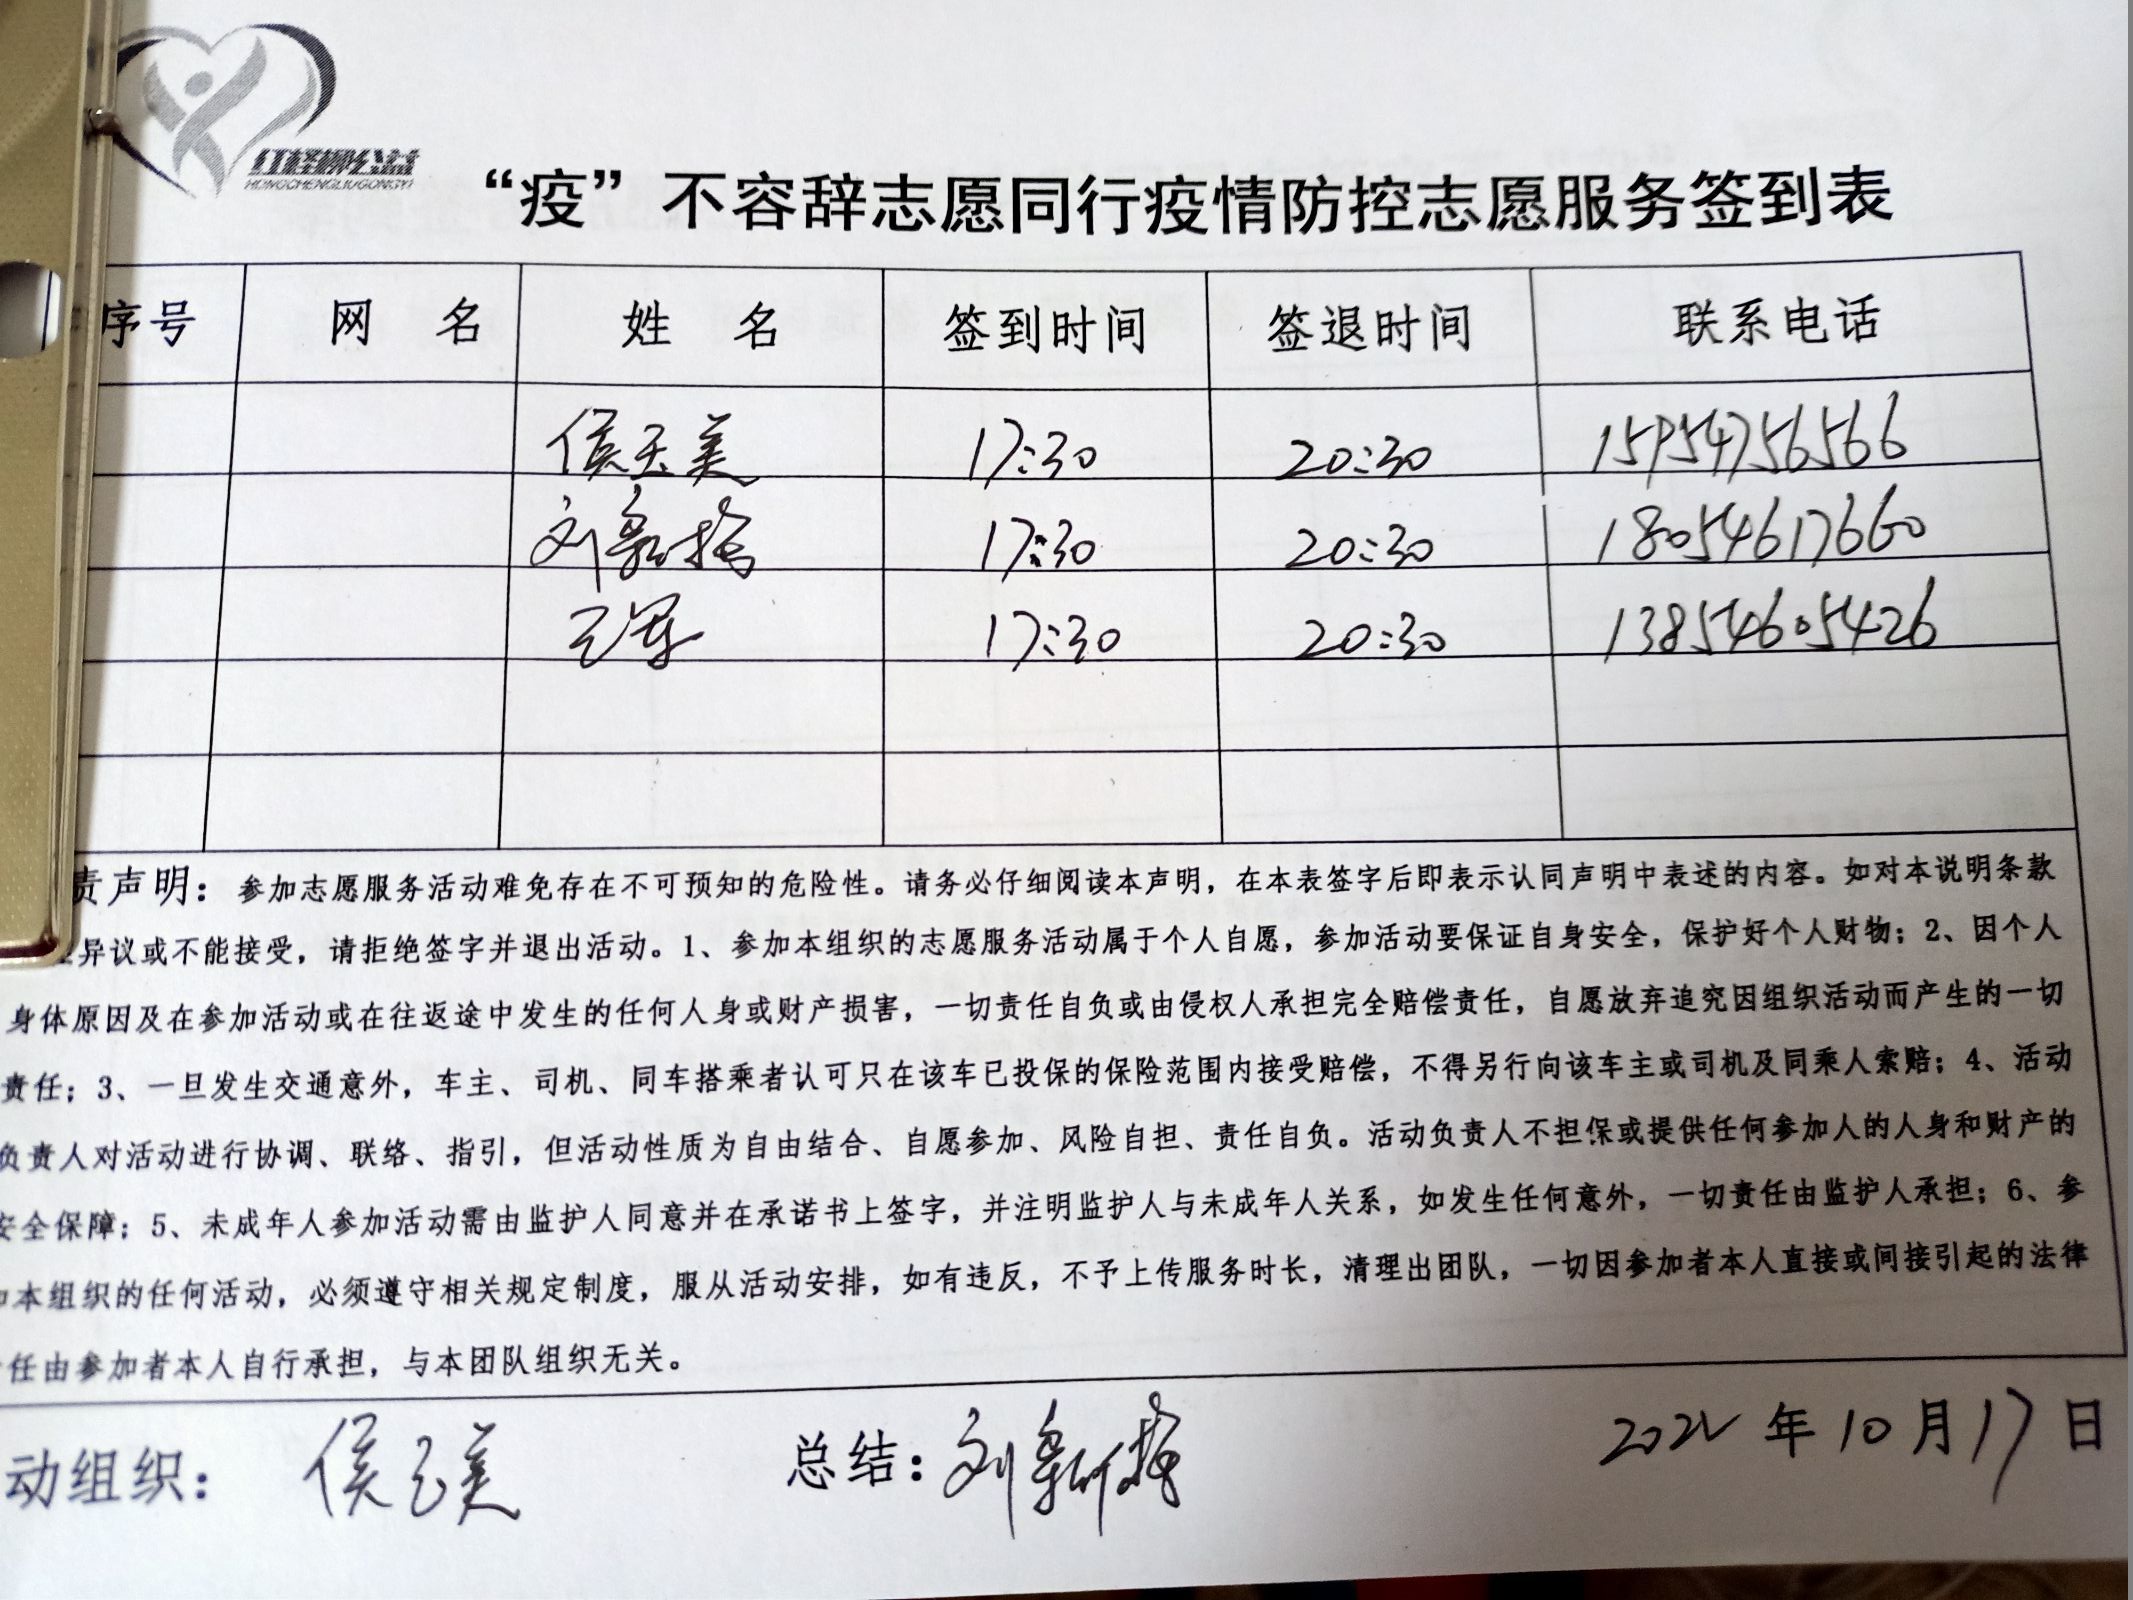 红柽柳公益
HONGCHENGLIUGONGYI
“疫”不容辞志愿同行疫情防控志愿服务签到表
序号 网 名 姓 名 签到时间 签退时间 联系电话
侯玉美 17:30 20:30 15954756566
刘新梅 17:30 20:30 18054617660
17:30 20:30 13854605426
责声明：参加志愿服务活动难免存在不可预知的危险性。请务必仔细阅读本声明，在本表签字后即表示认同声明中表述的内容。如对本说明条款
异议或不能接受，请拒绝签字并退出活动。1、参加本组织的志愿服务活动属于个人自愿，参加活动要保证自身安全，保护好个人财物；2、因个人
身体原因及在参加活动或在往返途中发生的任何人身或财产损害，一切责任自负或由侵权人承担完全赔偿责任，自愿放弃追究因组织活动而产生的一切
责任；3、一旦发生交通意外，车主、司机、同车搭乘者认可只在该车已投保的保险范围内接受赔偿，不得另行向该车主或司机及同乘人索赔；4、活动
负责人对活动进行协调、联络、指引，但活动性质为自由结合、自愿参加、风险自担、责任自负。活动负责人不担保或提供任何参加人的人身和财产的
安全保障；5、未成年人参加活动需由监护人同意并在承诺书上签字，并注明监护人与未成年人关系，如发生任何意外，一切责任由监护人承担；6、参
加本组织的任何活动，必须遵守相关规定制度，服从活动安排，如有违反，不予上传服务时长，清理出团队，一切因参加者本人直接或间接引起的法律
任由参加者本人自行承担，与本团队组织无关。
动组织：侯玉美 总结：刘新梅 2022年10月17日